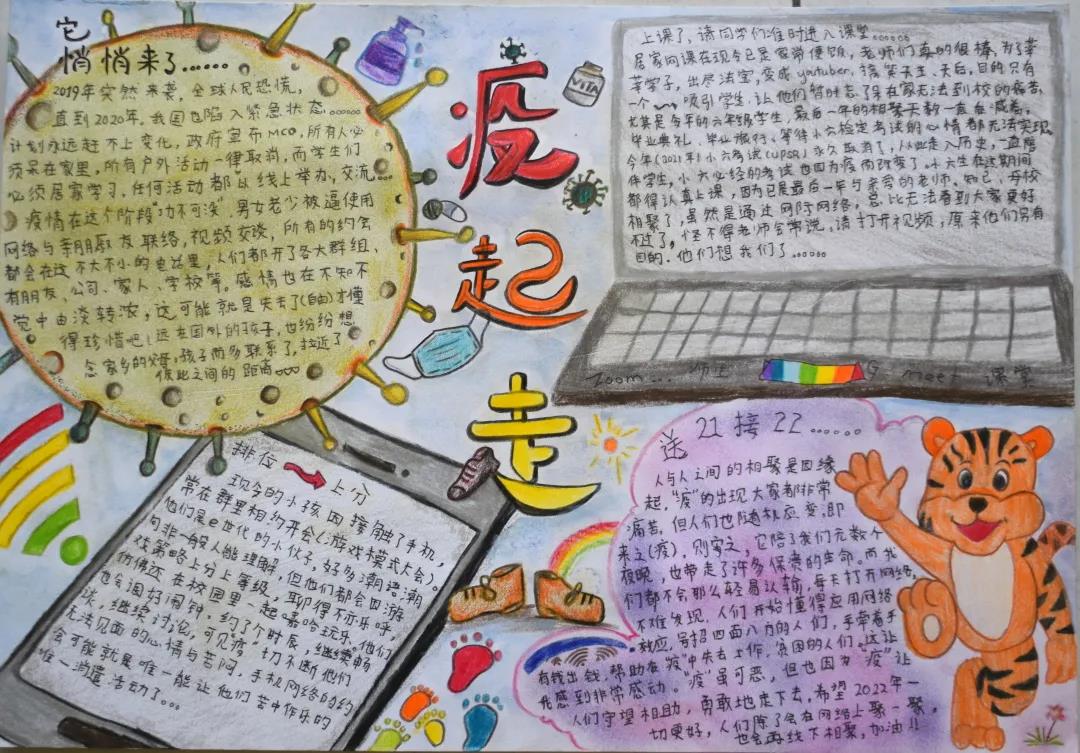 它
悄悄来了......
2019年突然来袭,全球人民恐慌,
直到2020年。我国也陷入紧急状态......
计划永远赶不上变化,政府宣布MCO,所有人必
须呆在家里,所有户外活动一律取消,而学生们
必须居家学习,任何活动都以线上举办,交流...
疫情在这个阶段“功不可没”,男女老少被逼使用
网络与亲朋戚友联络,视频交谈,所有的约会
都会在这不大不小的电話里,人们都开了各大群组、
有朋友、公司、家人、学校等。感情也在不知不
觉中由淡转浓,这可能就是失去了(自由)才懂
得珍惜吧!远在国外的孩子,也纷纷想
念家乡的父母,孩子而多联系了,拉近了
彼此之间的距离...
疫
起
走
VITA
上课了,请同学们准时进入课堂......
居家网课在现今已是家常便饭,老师们真的很棒,为了莘
莘学子,出尽法宝,变成youtuber,搞笑天王、天后,目的只有
一个 吸引学生,让他们暂时忘了呆在家无法到校的痛苦,
尤其是今年的六年级学生,最后一年的相聚天数一直在减着,
毕业典礼,毕业旅行,等待小六检定考试的心情都无法实现,
今年(2021年)小六考试(UPSR)永久取消了,从此走入历史,一直陪
伴学生,小六必经的考试也因为疫而改变了,小六生在这期间
都得认真上课,因为已是最后一年与亲爱的老师、知己、母校
相聚了,虽然是通过网际网络,总比无法看到大家更好
不过,怪不得老师会常说,请打开视频,原来他们另有
目的,他们想我们了......
Zoom... 师上 G meet 课堂
排位 上分
现今的小孩因接触了手机,
常在群里相约开会(游戏模式大会)。
他们是e世代的小伙子,好多潮语潮
句非一般人能理解,但他们都会因游
戏策略上分上等级,聊得不亦乐乎,
仿佛还在校园里一起嘻哈玩乐,他们
也会调好闹钟,约了个时辰,继续畅
谈,继续讨论,可见“疫”切不断他们
无法见面的心情与苦闷,手机网络的约
会可能就是唯一能让他们苦中作乐的
唯一消遣活动了...
送 21 接 22......
人与人之间的相聚是因缘
起,“疫”的出现大家都非常
痛苦,但人们也随机应变,即
来之(疫),则安之,它陪了我们无数个
夜晚,也带走了许多保贵的生命。而我
们都不会那么轻易认输,每天打开网络,
不难发现,人们开始懂得应用网络
效应,号招四面八方的人们,手牵着手
有钱出钱,帮助在“疫”中失去工作,贫困的人们,这让
我感到非常感动。“疫”虽可恶,但也因为“疫”让
人们守望相助,勇敢地走下去,希望2022年一
切更好,人们除了会在网络上聚一聚,
也会再线下相聚,加油!!